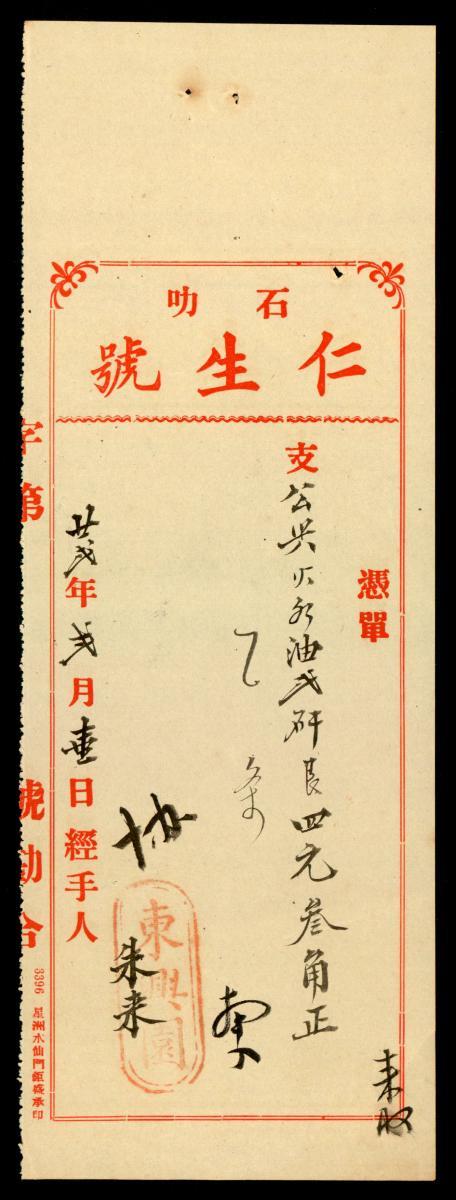 石叻
仁生號
憑單
支公興火水油弍砰艮四元叁角正
東興園
朱来
廿弍年弍月壹日經手人
字第 號勘合
3396 星洲水仙門鉅盛承印
来取